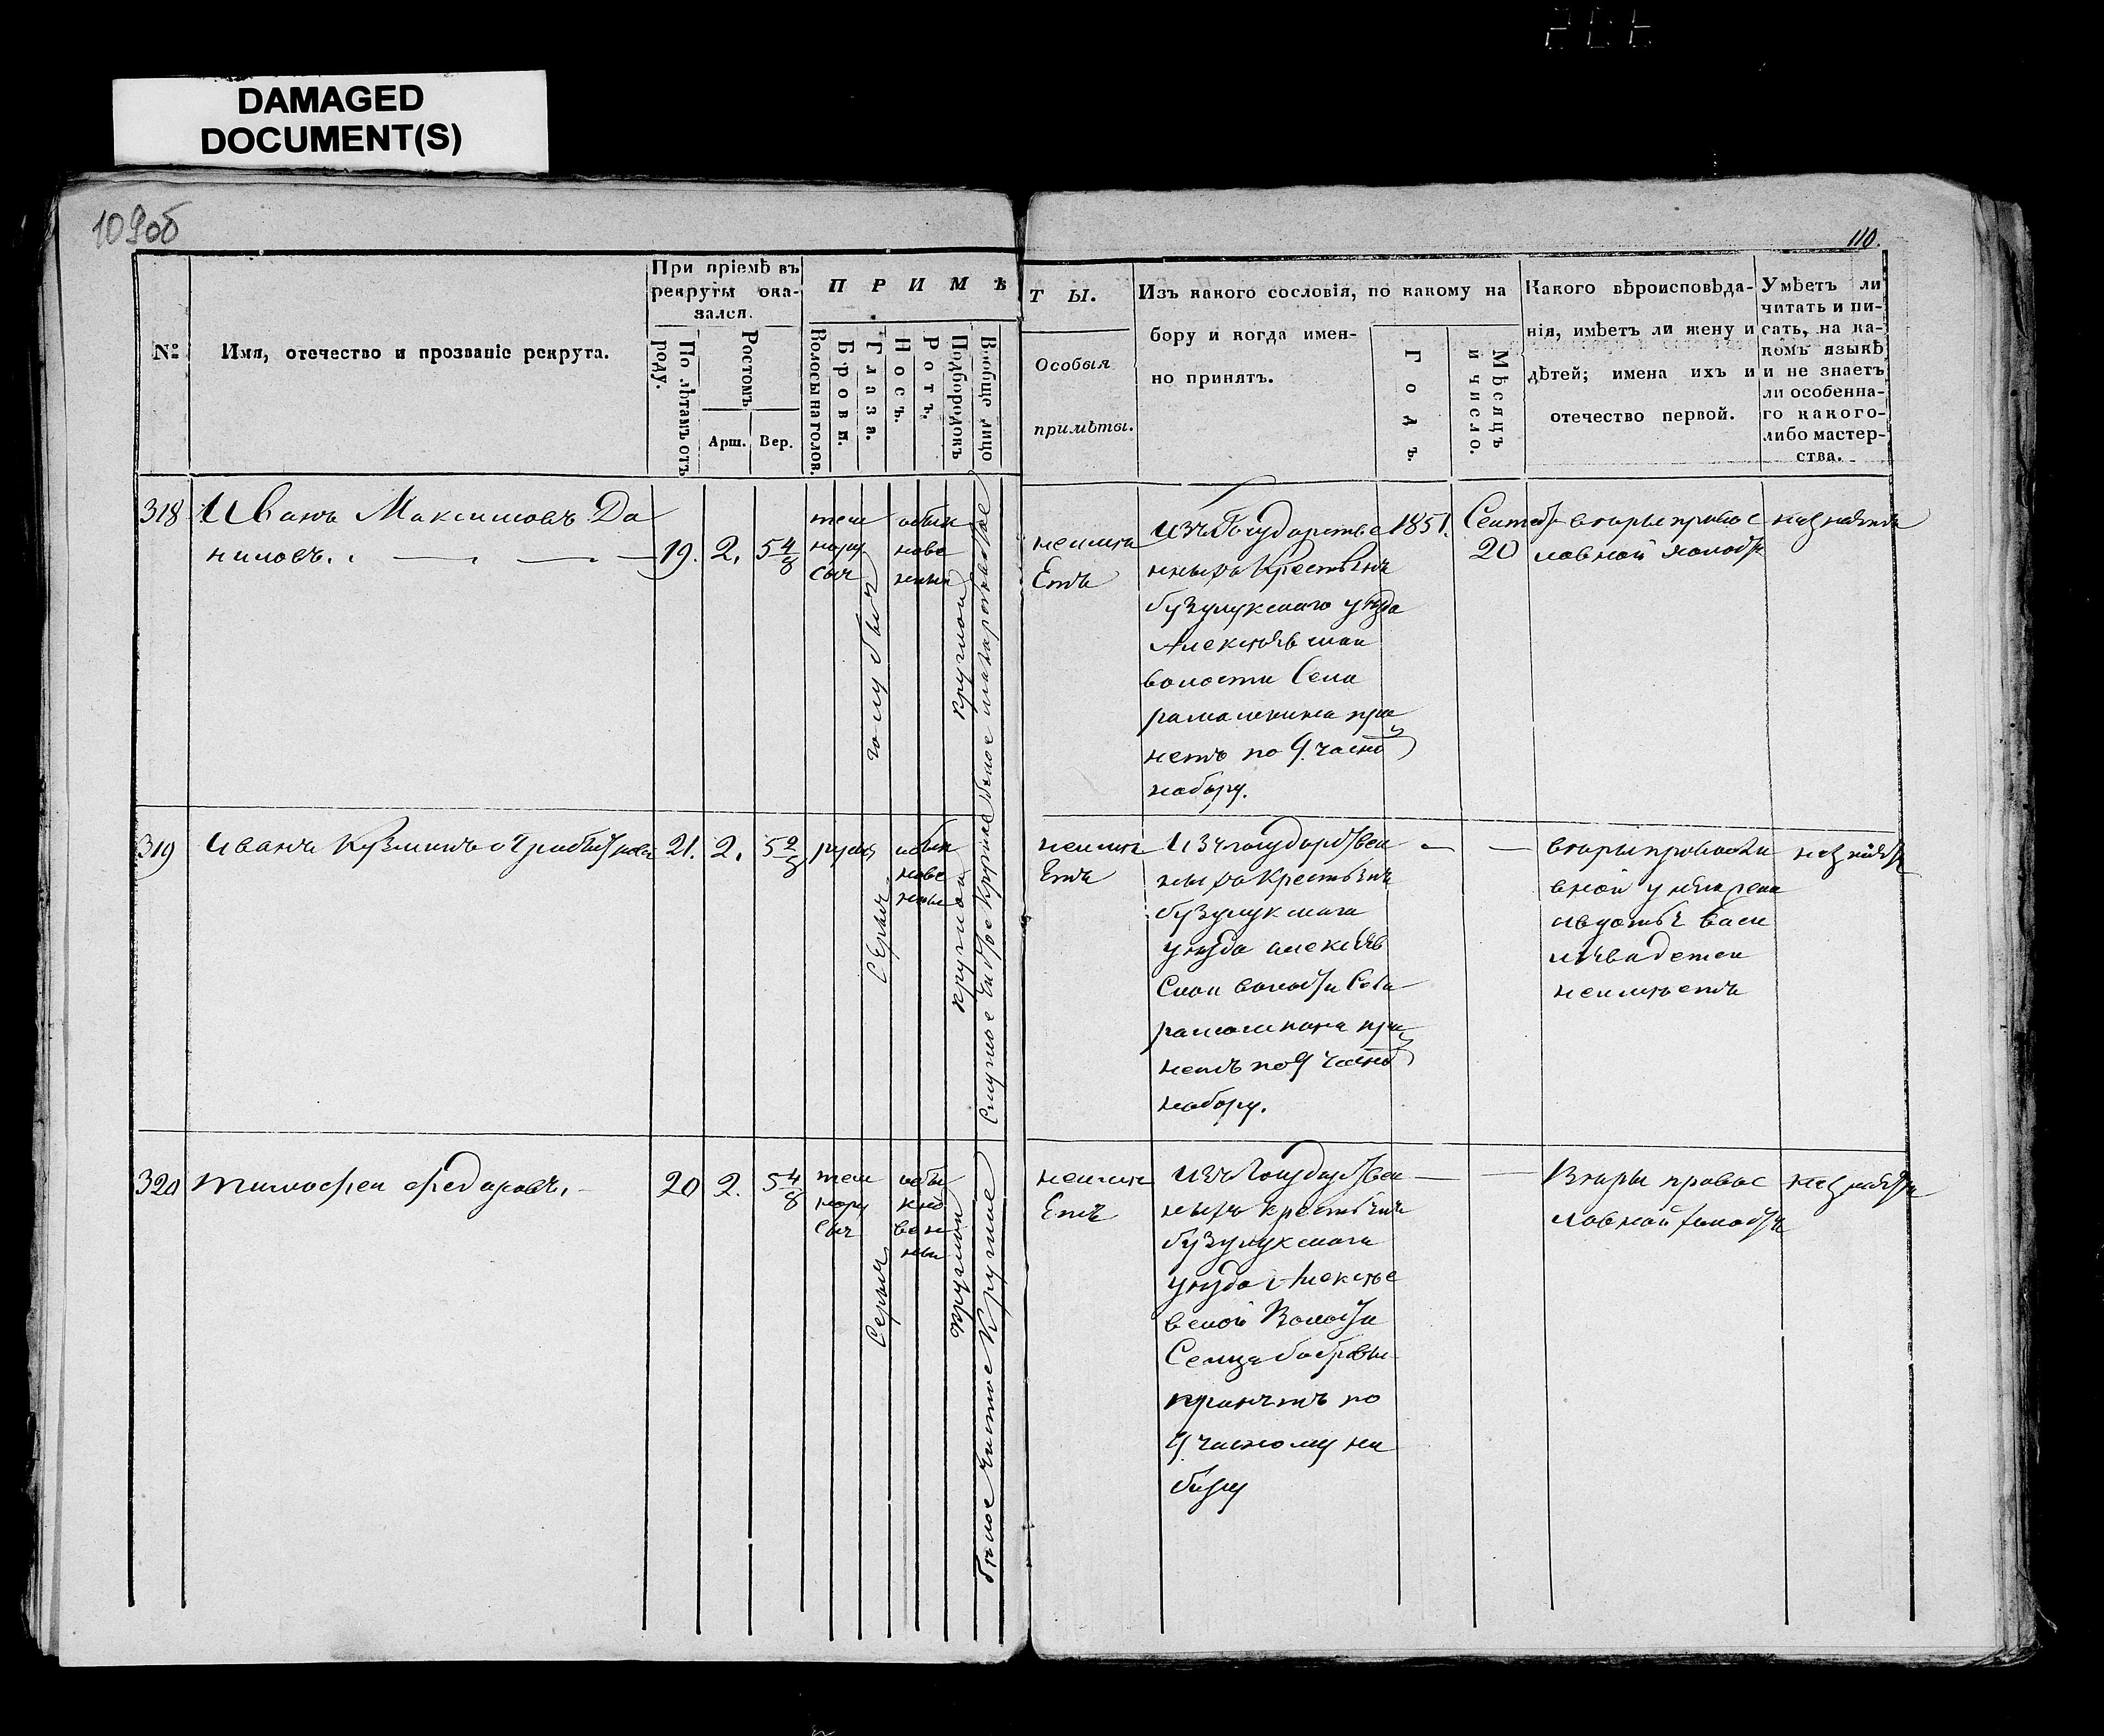 DAMAGED
DOCUMENT(S)
109об
110.
№
Имя, отечество и прозваніе рекрута.
При пріемѣ въ
рекруты ока-
зался.
По лѣтамъ отъ
роду.
Ростомъ
Арш.
Вер.
П Р И М Ѣ
Волосы на голов.
Брови.
Глаза.
Носъ.
Ротъ.
Подбородокъ
Вообще лицо
Т Ы.
Особыя
примѣты.
Изъ какого сословія, по какому на
бору и когда имен-
но принятъ.
Годъ.
Мѣсяцъ
и число.
Какого вѣроисповѣда-
нія, имѣетъ ли жену и
дѣтей; имена ихъ и
отечество первой.
Умѣетъ ли
читать и пи-
сать, на ка-
комъ языкѣ
и не знаетъ
ли особенна-
го какого-
либо мастер-
ства.
318
Иванъ Максимовъ Да
ниловъ.
19.
2.
5 4/8
темн
нору
сыя
голубыя
обык
нове
нныи
круглои
неимѣ
Етъ
Изъ Государстве
нныхъ Крестьянъ
бузулукскаго уѣзда
Алексѣевскои
волости Села
при
нетъ по 9. частно
набору.
1851.
Сентяб
20
вѣры правос
лавной холостъ
незнаетъ
319
Иванъ Кузминъ
21.
2.
5 2/8
русыя
Серыя
обык
нове
нныи
круглои
неимѣ
Етъ
Изъ государствен
ныхъ Крестьянъ
бузулукскаго
уѣзда алексѣев
Скои волости Села
при
нетъ по 9 частно
набору.
вѣры правосла
вной
детеи
неимѣетъ
незнаетъ
320
тимофеи федоровъ.
20
2.
5 4/8
темн
нору
сыя
Серыя
обы
кно
вен
ныи
круглои
белое чистое Круглое
неимѣ
Етъ
Изъ Государствен
ныхъ крестьянъ
бузулукскаго
уѣзда Алексѣе
вской Волости
Сельца бобровки
принятъ по
9. частному на
бору
Вѣры правос
лавной холостъ
незнаетъ